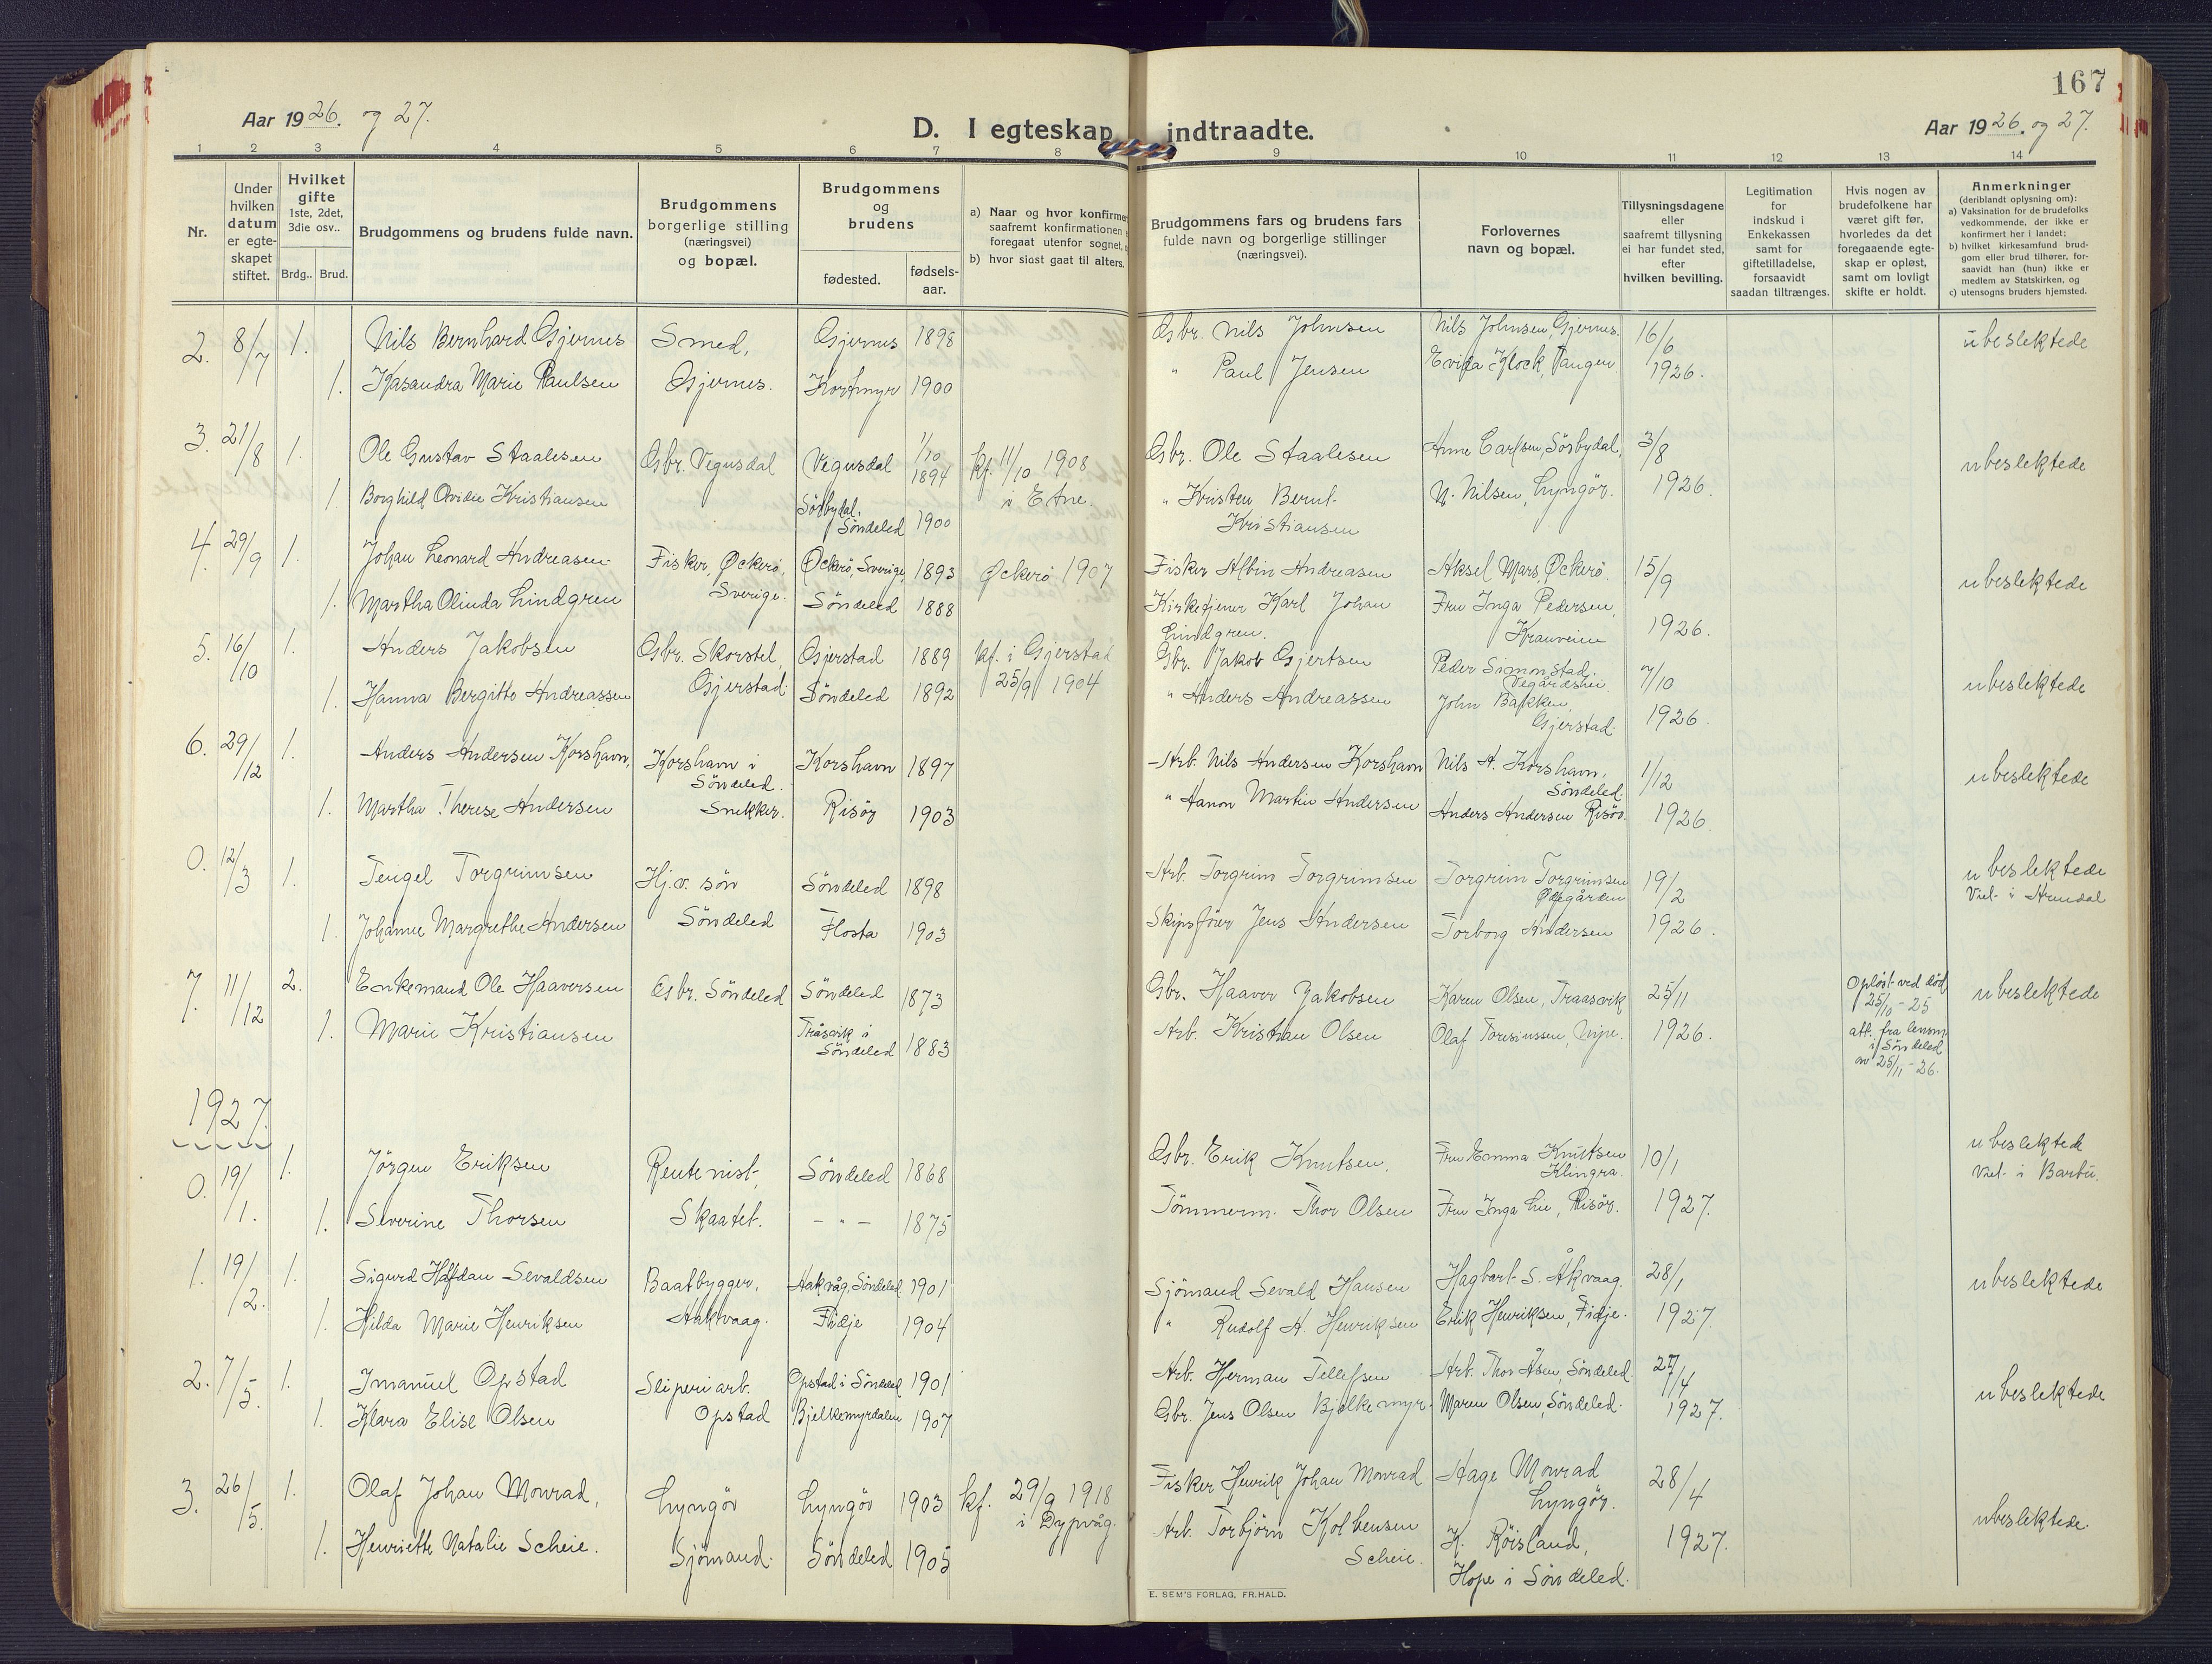 167
Aar 1926. og 27.
D. I egteskap indtraadte.
Aar 1926. og 27.
1 2 3 4 5 6 7 8 9 10 11 12 13 14
Nr.
Under hvilken datum er egteskapet stiftet.
Hvilket gifte 1ste, 2det, 3die osv..
Brdg.. Brud.
Brudgommens og brudens fulde navn.
Brudgommens borgerlige stilling (næringsvei) og bopæl.
Brudgommens og brudens
fødested.
fødsels-aar.
a) Naar og hvor konfirme
saafremt konfirmationen
foregaat utenfor sognet,
b) hvor sidst gaat til alters.
Brudgommens fars og brudens fars
fulde navn og borgerlige stillinger
(næringsvei).
Forlovernes
navn og bopæl.
Tillysningsdagene
eller
saafremt tillysning
ei har fundet sted,
efter
hvilken bevilling.
Legitimation
for
indskud i
Enkekassen
samt for
giftetilladelse,
forsaavidt
saadan tiltrænges.
Hvis nogen av
brudefolkene har
været gift før,
hvorledes da det
foregaaende egte-
skap er opløst,
samt om lovligt
skifte er holdt.
Anmerkninger
(deriblandt oplysning om):
a) Vaksination for de brudefolks
vedkommende, der ikke er
konfirmert her i landet;
b) hvilket kirkesamfund brud-
gom eller brud tilhører, for-
saavidt han (hun) ikke er
medlem av Statskirken, og
c) utensogns bruders hjemsted.
2. 8/7 1. Nils Bernhard Gjernes Smed, Gjernes 1898 Gbr. Nils Johnsen Nils Johnsen, Gjernes. 16/6 ubeslektede
1. Kasandra Marie Paulsen Gjernes. Kortmyr 1900 " Paul Jensen Klock, Tangen 1926.
3. 21/8 1. Ole Gustav Staalesen Gbr. Vegusdal Vegusdal 1/10 1894 kf. 11/10 1908 Gbr. Ole Staalesen Anne Carlsen, Sörbydal, 3/8 ubeslektede
1. Borghild Ovidie Kristiansen Sörbydal, Söndeled 1900 i Etne. " Kristen Bernt Kristiansen N. Nilsen, Lyngör. 1926.
4. 29/9 1. Johan Leonard Andreasen Fisker, Öckerö, Öckerö, Sverige, 1893 Öckerö 1907 Fisker Albin Andreasen Aksel Mars, Öckerö. 15/9 ubeslektede
1. Martha Olinda Lindgren Sverige. Söndeled 1888 Kirketjener Karl Johan Lindgren. Fru Inga Pedersen, 1926.
5. 16/10 1. Anders Jakobsen Gbr. Skorstel, Gjerstad 1889 kf. i Gjerstad Gbr. Jakob Gjertsen Peder Simonstad, Vegardshei 7/10 ubeslektede
1. Hanna Bergitte Andreassen Gjerstad. Söndeled 1892 25/9 1904 " Anders Andreassen John Bakken, Gjerstad. 1926.
6. 29/12 1. Anders Andersen Korshavn, Korshavn i Söndeled. Korshavn 1897 Arb. Nils Andersen Korshavn Nils A. Korshavn, Söndeled. 1/12 ubeslektede
1. Martha Therese Andersen Snekker. Risör 1903 " Hanon Martin Andersen Anders Andersen Risör. 1926.
0. 12/3 1. Tengel Torgrimsen Hj.v. sön Söndeled 1898 Arb. Torgrim Torgrimsen Torgrim Torgrimsen Ödegården 19/2 ubeslektede Viet i Arendal
1. Johanne Margrethe Andersen Söndeled Flosta 1903 Skipsförer Jens Andersen Torborg Andersen 1926.
7. 11/12 2. Enkemand Ole Haaversen Gbr. Söndeled Söndeled 1873 Gbr. Haaver Jakobsen Karen Olsen, Traasvik 25/11 Oplöst ved död 25/10-25 ubeslektede
1. Marie Kristiansen Tråsvik i Söndeled 1883 Arb. Kristian Olsen Olaf Toresiussen, Nipe. 1926. att. fra lensm. i Söndeled av 25/11-26.
1927.
0. 19/1. 1. Jörgen Eriksen Rentenist, Söndeled 1868 Gbr. Erik Knutsen. Fru Emma Knutsen Klingra. 10/1 ubeslektede Viet i Barbu.
1. Severine Thorsen Skaatet. - " - 1875 Tömmerm. Thor Olsen Fru Inga Lie, Risör. 1927.
1. 19/2. 1. Sigurd Halfdan Sevaldsen Baatbygger, Aakvåg, Söndeled 1901 Sjömand Sevald Hansen Hagbart S. Åkvaag. 28/1 ubeslektede
1. Hilda Marie Henriksen Aakvaag. Fidje 1904 " Rudolf H. Henriksen Erik Henriksen, Fidje. 1927.
2. 7/5. 1. Imanuel Opstad Sliperiarb. Opstad i Söndeled 1901 Arb. Herman Tellefsen Arb. Thor Åsen, Söndeled. 27/4 ubeslektede
1. Klara Elise Olsen Opstad Bjelkemyrdalen 1907 Gbr. Jens Olsen Bjelkemyr. Maren Olsen, Söndeled. 1927.
3. 26/5. 1. Olaf Johan Monrad, Lyngör Lyngör 1903 kf. 29/9 1918 i Dypvåg. Fisker Henrik Johan Monrad Hage Monrad Lyngör. 28/4 ubeslektede.
1. Henriette Natalie Scheie. Sjömand. Söndeled 1905 Arb. Torbjörn Kolbensen Scheie. K. Röisland, Hope i Söndeled. 1927.
E. SEM'S FORLAG, FR.HALD.